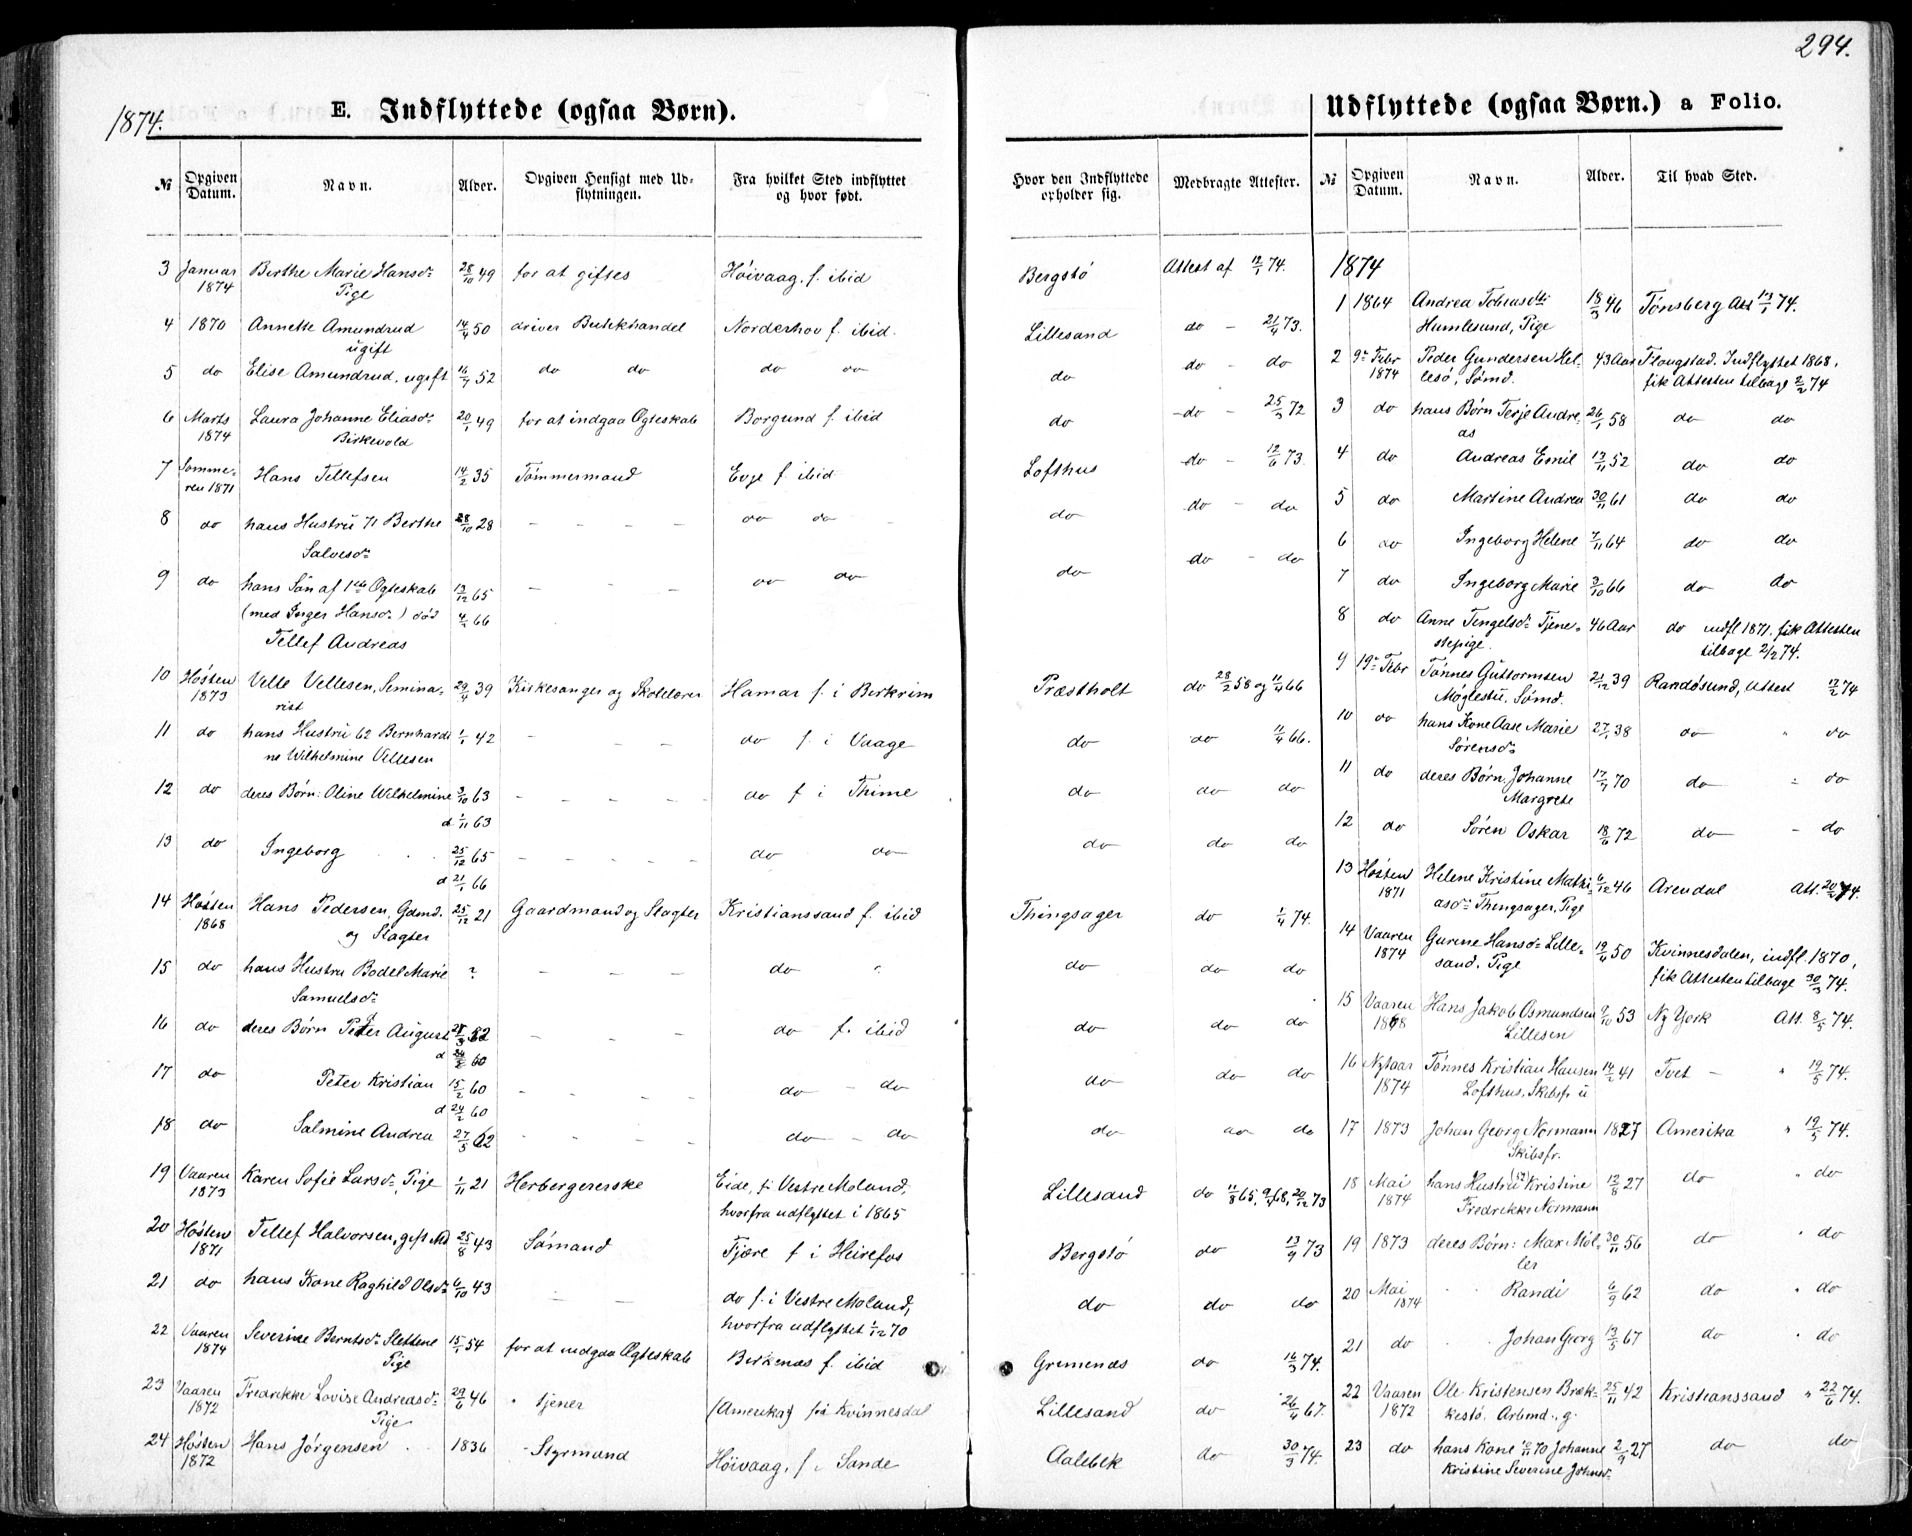 294.
1874.
E. Indflyttede (ogsaa Børn).
№ Opgiven Datum. Navn. Alder. Opgiven Hensigt med Udflytningen. Fra hvilket Sted indflyttet og hvor født. Hvor den Indflyttede opholder sig. Medbragte Attester.
3 Januar 1874 Berthe Marie Hansdr Pige 28/10 49 for at giftes Höivaag, f. ibid Bergstö Attest af 12/1 74.
4 1870 Annette Amundrud ugift 14/4 50 driver Butikhandel Norderhov f. ibid. Lillesand do - 21/4 73.
5 do Elise Amundrud, ugift 16/7 52 do do do do do do - do
6 Marts 1874 Laura Johanne Eliasdr Birkevold 20/1 49 for at indgaa Ægteskab Borgund f. ibid do do - 25/3 72
7 Sommeren 1871 Hans Tellefsen 14/2 35 Tömmermand Evje f. ibid Lofthus do - 12/6 73.
8 do hans Hustru 71 Berthe Salvesdr 28/10 28 - - - - do do - do do - do
9 do hans Sön af 1ste Ægteskab (med Inger Hansdr) död Tellef Andreas 13/12 65 4/2 66 - - - do do do do - do
10 Hösten 1873 Velle Vellesen, Seminarist 29/4 39 Kirkesanger og Skolelærer Hamar f. i Birkrim Præstholt do 28/2 58 og 11/4 66
11 do hans Hustru 62 Bernhardine Wilhelmine Vellesen 1/1 42 - - - do f. i Vaage do do 11/4 66.
12 do deres Börn: Oline Wilhelmine 3/10 63 d 1/11 63 - - - - - do f i Thime do do do
13 do Ingeborg 25/12 65 d 21/1 66 - - - - - do do do do do
14 Hösten 1868 Hans Pedersen, Gdmd. og Slagter 25/12 21 Gaardmand og Slagter Kristianssand f. ibid Thingsager do 1/4 74.
15 do hans Hustru Bodel Marie Samuelsdr ? - - - do " do do do
16 do deres Börn Peder August 52 d 60 - - - do f. ibid do do do
17 do Peter Kristian 15/2 60 d 24/2 60 - - - - do - do do do do
18 do Salmine Andrea 27/5 62 - - - - do - do do do do
19 Vaaren 1873 Karen Sofie Larsdr, Pige 1/11 21 Herbergererske Eide, f. i Vestre Moland, hvorfra udflyttet i 1865 Lillesand do 11/8 65, 68, 20/12 73
20 Hösten 1871 Tellef Halvorsen, gift 25/8 43 Sömand Tjære f i Heirefos Bergstö do 13/9 73
21 do hans Kone Raghild Olsdr 6/10 43 - - do f. i Vestre Moland, hvorfra udflyttet 1/12 70 do do do
22 Vaaren 1874 Severine Berntsdr Slettene Pige 15/1 54 for at indgaa Ægteskab Birkenæs f. ibid Grimenæs do 16/3 74.
23 Vaaren 1872 Fredrikke Lovise Andreasdr Pige 29/6 46 " tjener (Amerika) frå Kvinnesdal Lillesand do 26/4 67.
24 Hösten 1872 Hans Jörgensen 1836 - Styrmand Höivaag, f. i Sande Aalebek do 30/3 74.
Udflyttede (ogsaa Børn.) a Folio.
№ Opgiven Datum. Navn. Alder. Til hvad Sted.
1874
1 1864 Andrea Tobiasdtr Humlesund, Pige 18/3 46 Tönsberg Att 13/1 74.
2 9de Febr 1874 Peder Gundersen Hellesö, Sömd. 43 Aar Flougstad. Indflyttet 1868, fik Attesten tilbage 2/2 74
3 do hans Börn Terje Andreas 26/1 58 do do
4 do Andreas Emil 13/11 52 do do
5 do Martine Andrea 30/11 61 do do
6 do Ingeborg Helene 7/11 64 do do
7 do Ingeborg Marie 3/10 66 do do
8 do Anne Tengelsdr Tjenestepige. 46 Aar do indfl 1871. fik Attesten tilbage 2/2 74.
9 19de Febr Tönnes Guttormsen Möglestu, Sömd. 21/12 39 Randösund, Attest 12/2 74
10 do hans Kone Aase Marie Sörensdr 27/1 38 do " do
11 do deres Börn. Johanne Margrete 17/7 70 do " do
12 do Sören Oskar 18/6 72 do - do
13 Hösten 1871 Helene Kristine Mathiasdr Thingsager, Pige 6/12 46 Arendal Att. 20/2 74.
14 Vaaren 1874 Gurine Hansdr Lillesand. Pige 19/4 50 Kvinnesdalen, indfl. 1870, fik Attesten tilbage 30/3 74.
15 Vaaren 1868 Hans Jakob Osmundsen Lillesen 9/10 53 Ny York Att. 8/5 74.
16 Nytaar 1874 Tönnes Kristian Hansen Lofthus, Skibsfr u 14/2 41 Tvet - " 19/5 74.
17 1873 Johan Georg Normann Skibsfr. 1827 Amerika " 19/5 74.
18 Mai 1874 hans Hustru Kristine Fredrikke Normann 12/8 27 do " do
19 1873 deres Börn: Max Möller 30/11 56 do " do
20 Mai 1874 " Randi 6/9 62 do " do
21 do " Johan Georg 13/5 67 do " do
22 Vaaren 1872 Ole Kristensen Brækkestö, Arbmd., g. 25/11 42 Kristianssand " 22/6 74.
23 do hans Kone 70 Johanne Kristine Severine Johnsdr 2/9 27 do do